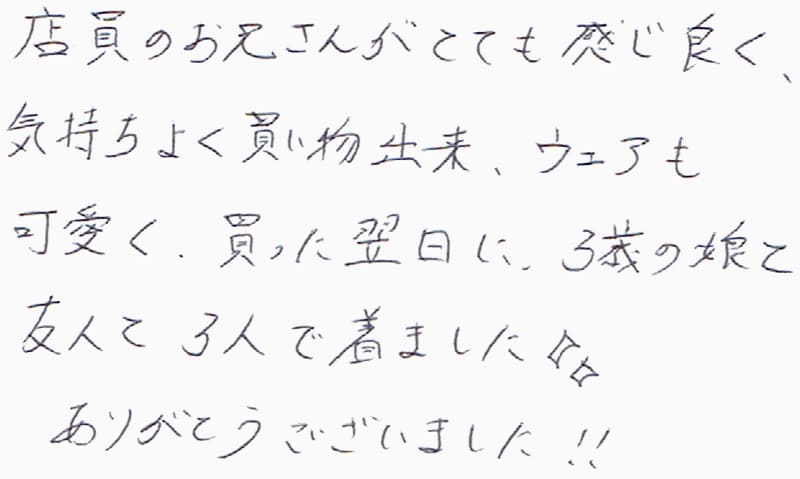 店員のお兄さんがとても感じ良く、
気持ちよく買い物出来、ウェアも
可愛く、買った翌日に、3歳の娘と
友人と3人で着ました✧✧
ありがとうございました!!